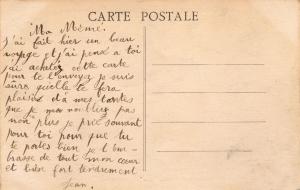 CARTE POSTALE
Ma Mémé.
j'ai fait hier un beau
voyage et j'ai pensé a toi
j'ai acheté cette carte
pour te l'envoyer je suis
sura quelle te fera
plaisir et a mes tantes
que je ne oublies pas
non plus je prie souvant
pour toi pour que tu
te portes bien je t'em-
brasse de tout mon cœur
et bien fort tendrement
Jean.